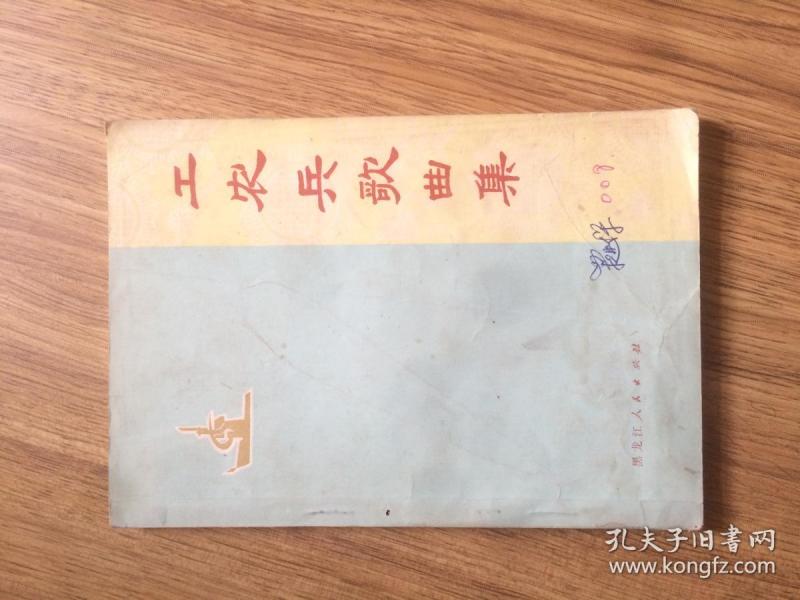 工农兵歌曲集
008
黑龙江人民出版社
孔夫子旧书网
www.kongfz.com